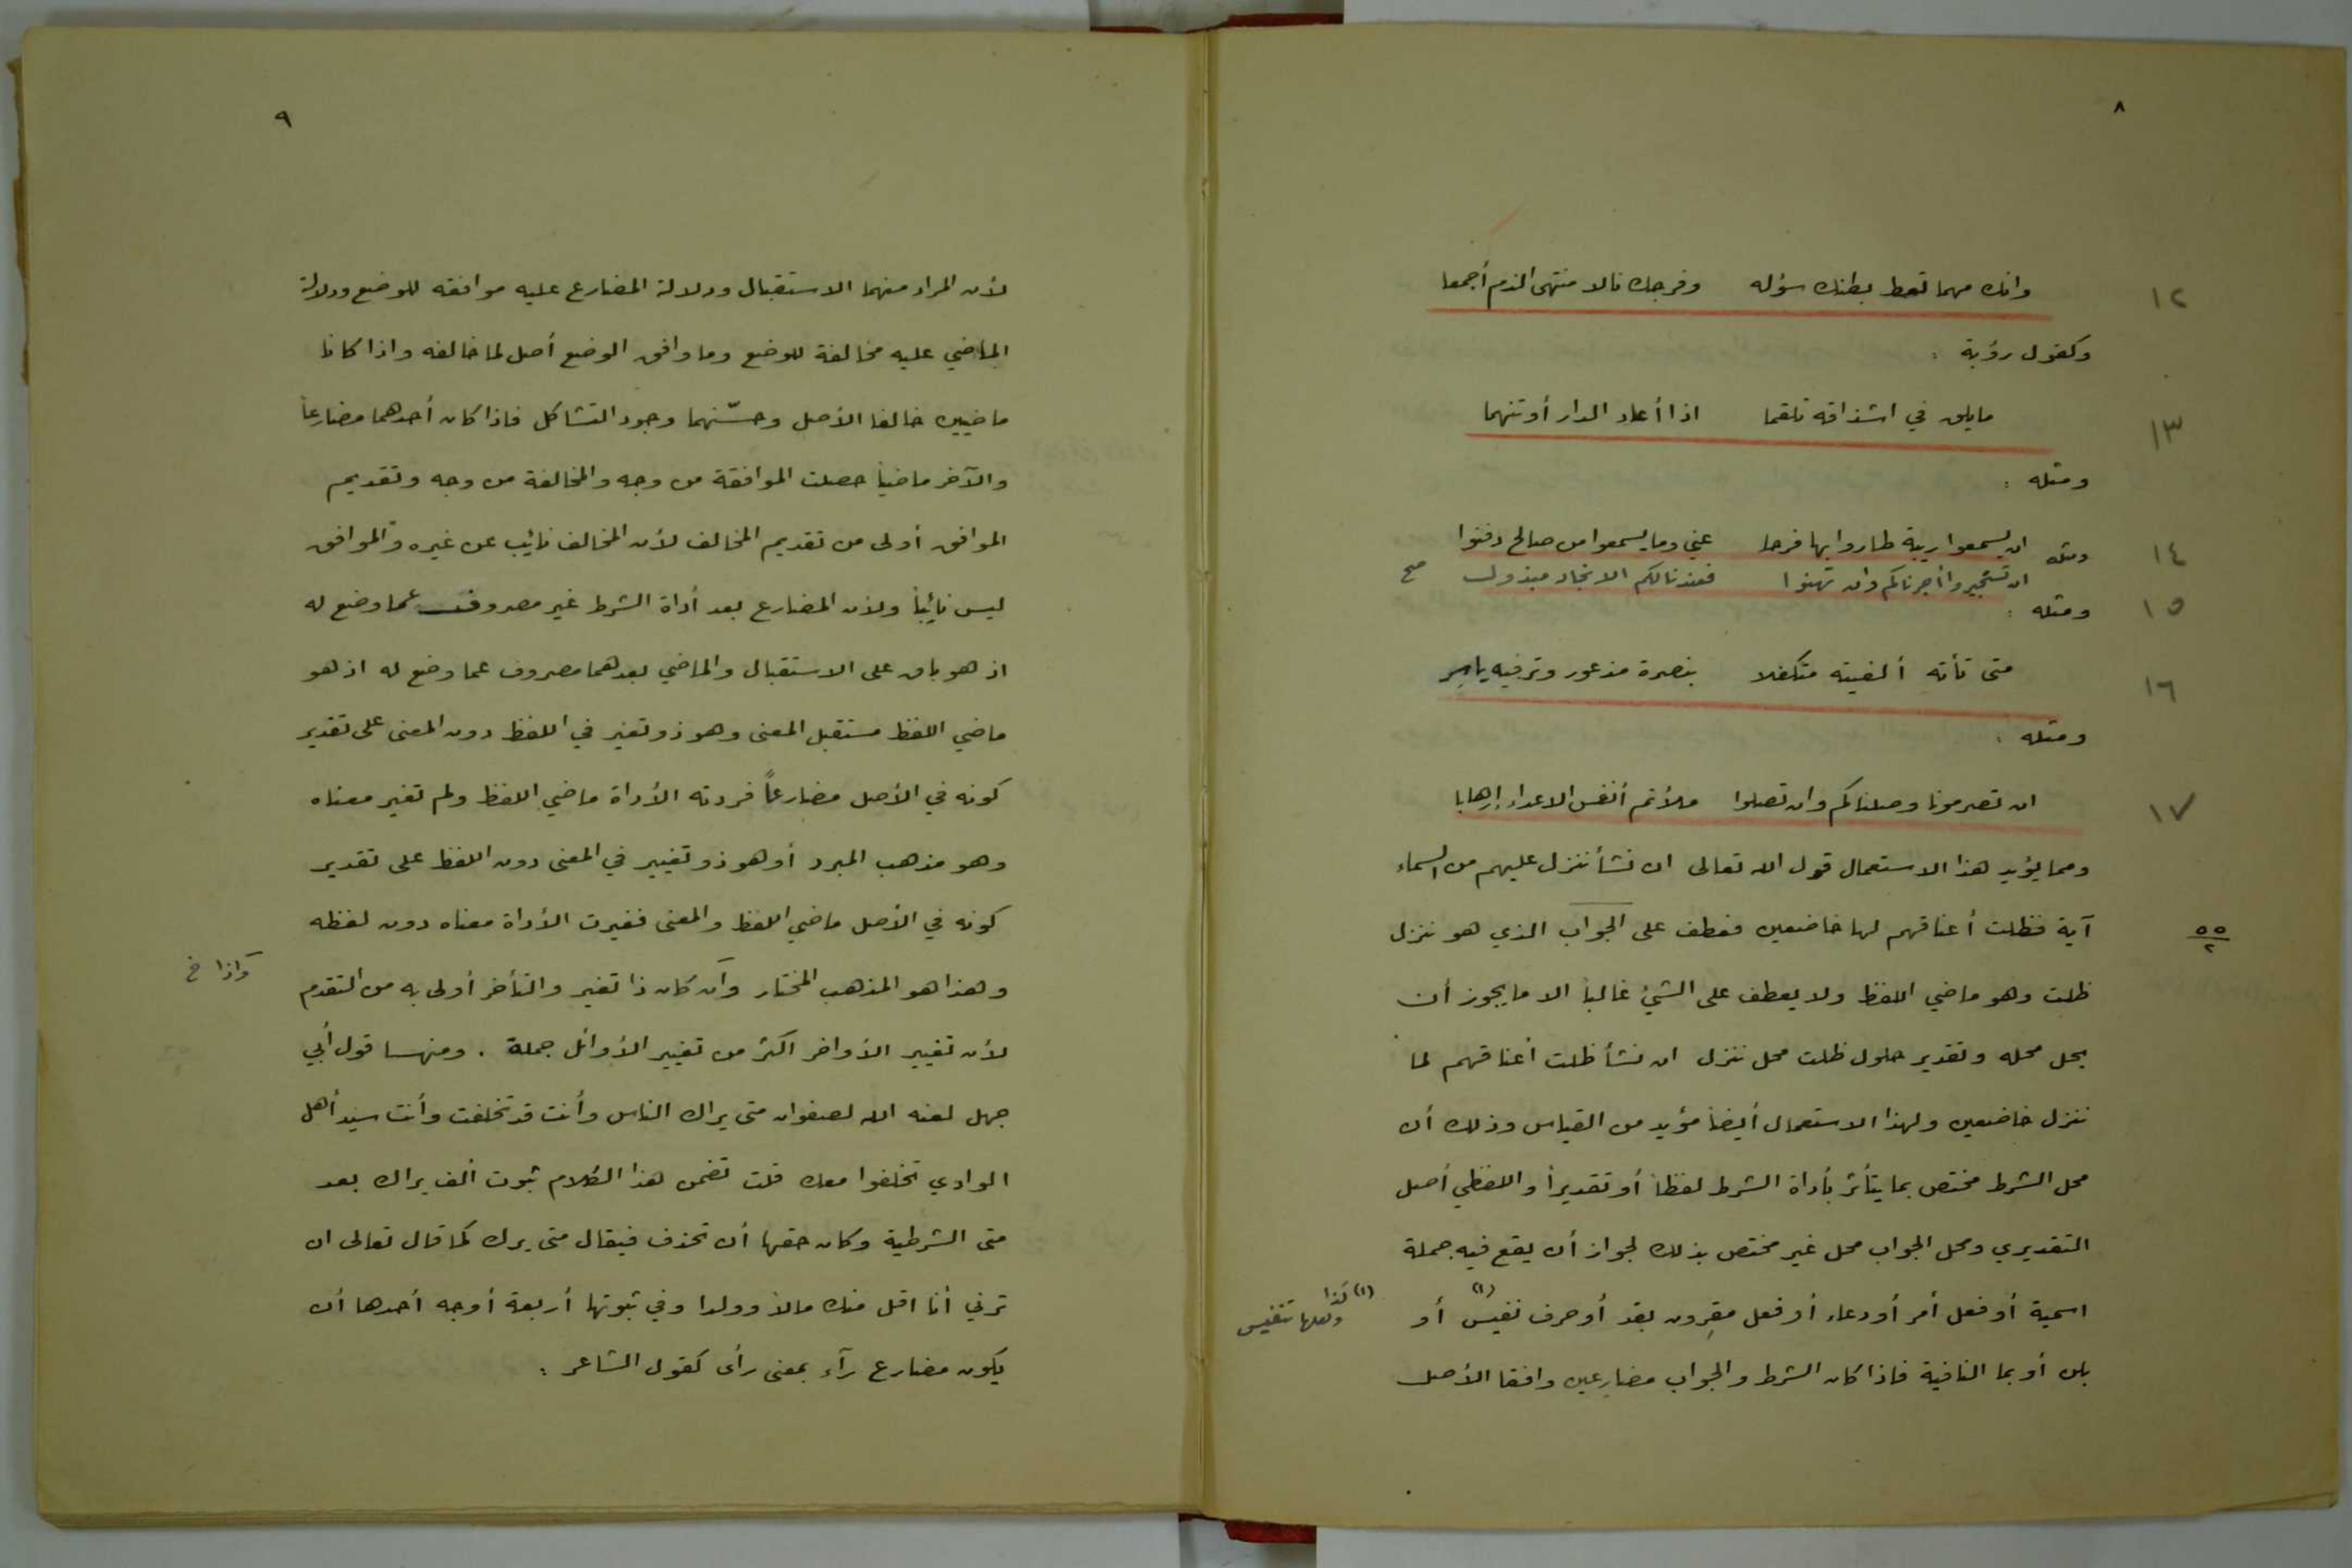 ٨
١٢
وانك مهما تعط بطنك سؤله وفرجك نالا منتهى الذم أجمعا
وكقول رؤبة :
١٣
مايلق في اشداقه تلقما اذا أعاد الدار أو تنهما
ومثله :
١٤
ان يسمعوا ريبة طاروا بها فرحا عني وما يسمعوا من صالح دفنوا
ومثله ان تستجيروا أجرناكم وان تهنوا فعندنا لكم الانجاد مبذول صح
١٥
ومثله :
١٦
متى تأته ألفيته متكفلا بنصرة مذعور وترفيه يامر
ومثله :
١٧
ان تصرمونا وصلناكم وان تصلوا ملأتم أنفس الاعداء إرهابا
ومما يؤيد هذا الاستعمال قول الله تعالى ان نشأ ننزل عليهم من السماء
آية فظلت أعناقهم لها خاضعين فعطف على الجواب الذي هو ننزل
٥٥
٢
ظلت وهو ماضي اللفظ ولا يعطف على الشيئ غالباً الا ما يجوز أن
يحل محله وتقدير حلول ظلت محل ننزل ان نشأ ظلت أعناقهم لما
ننزل خاضعين ولهذا الاستعمال أيضاً مؤيد من القياس وذلك أن
محل الشرط مختص بما يتأثر بأداة الشرط لفظاً أو تقديراً واللفظي أصل
التقديري ومحل الجواب محل غير مختص بذلك لجواز أن يقع فيه جملة
اسمية أو فعل أمر أو دعاء أو فعل مقرون بقد أو حرف نفيس (١) أو
(١) كذا
ولعلها تنفيس
بلن أو بما النافية فاذا كان الشرط والجواب مضارعين وافقا الأصل
٩
لأن المراد منهما الاستقبال ودلالة المضارع عليه موافقه للوضع ودلالة
الماضي عليه مخالفة للوضع وما وافق الوضع أصل لما خالفه واذا كانا
ماضيين خالفا الأصل وحسّنهما وجود التشاكل فاذا كان أحدهما مضارعاً
والآخر ماضياً حصلت الموافقة من وجه والمخالفة من وجه وتقديم
الموافق أولى من تقديم المخالف لأن المخالف نائب عن غيره والموافق
ليس نائباً ولأن المضارع بعد أداة الشرط غير مصروف عما وضع له
اذ هو باق على الاستقبال والماضي بعدهما مصروف عما وضع له اذ هو
ماضي اللفظ مستقبل المعنى وهو ذو تغير في اللفظ دون المعنى على تقدير
كونه في الأصل مضارعاً فردته الأداة ماضي اللفظ ولم تغير معناه
وهو مذهب المبرد أو هو ذو تغيير في المعنى دون اللفظ على تقدير
كونه في الأصل ماضي اللفظ والمعنى فغيرت الأداة معناه دون لفظه
وهذا هو المذهب المختار وان كان ذا تغير والتأخر أولى به من التقدم
واذا خ
لأن تغيير الأواخر اكثر من تغيير الأوائل جملة . ومنها قول أبي
جهل لعنه الله لصفوان متى يراك الناس وأنت قد تخلفت وأنت سيد أهل
الوادي تخلفوا معك قلت تضمن هذا الكلام ثبوت ألف يراك بعد
متى الشرطية وكان حقها أن تحذف فيقال متى يرك كما قال تعالى ان
ترني أنا اقل منك مالاً وولدا وفي ثبوتها أربعة أوجه أحدها أن
يكون مضارع رآء بمعنى رأى كقول الشاعر :